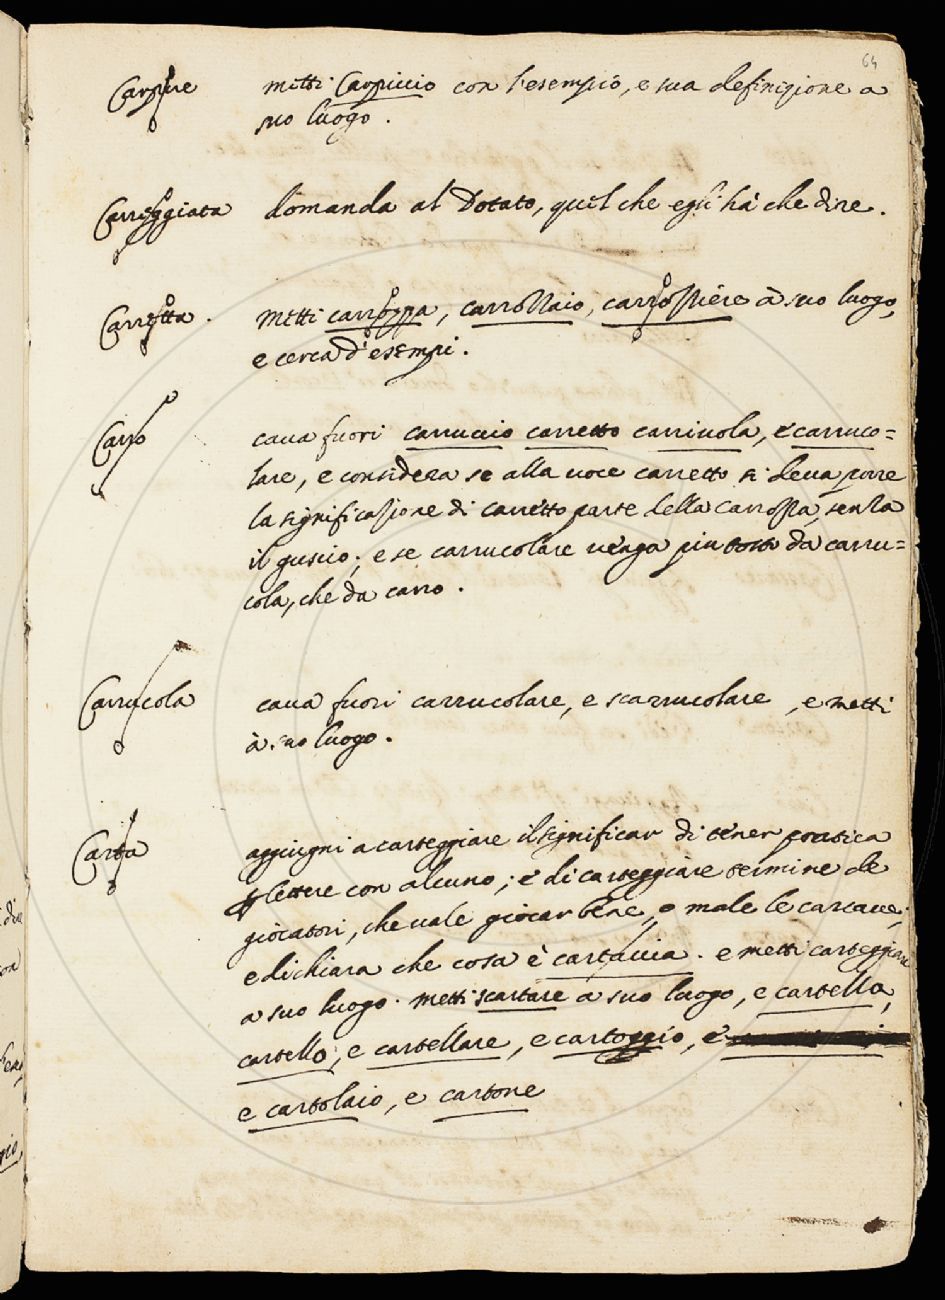 64
Carpire metti Carpiccio con l'esempio, e sua definizione a
suo luogo.
Carreggiata domanda al Dotato, quel che egli hà che dire.
Carretta. metti carrozza, carrozzaio, carrozziere à suo luogo,
e cerca d'esempi.
Carro caua fuori carruccio carretto carriuola, e carruco=
lare, e considera se alla uoce carretto si deua porre
la significazione di carretto parte della carrozza, senza
il guscio; e se carrucolare uenga piu tosto da carru=
cola, che da carro.
Carrucola caua fuori carrucolare, e scarrucolare, e metti
à suo luogo.
Carta aggiugni a carteggiare il significar di tener pratica
lettere con alcuno; e di carteggiare termine de
giocatori, che uale giocar bene, o male le carte
e dichiara che cosa è cartaccia. e metti carteggiare
a suo luogo. metti scartare a suo luogo, e cartella,
cartello, e cartellare, e cartoggio, e
e cartolaio, e cartone